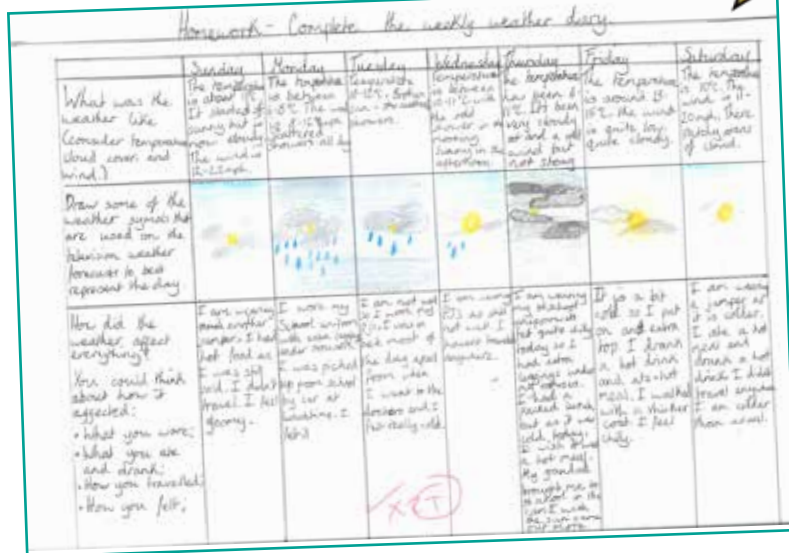 Homework - Complete the weekly weather diary
Sunday Monday Tuesday Wednesday Thursday Friday Saturday
What was the
weather like
(consider temperature
cloud cover and
wind.)
The temperature
is about
It started of
sunny but is
now cloudy
The wind is
12-22mph.
The temperature
is between
6-8°C. The wind
is 8-12mph
Scattered
showers all day
Temperature
10-12°C.
showers.
Temperature
is between
10-11°C with
the odd
shower in the
morning
sunny in the
afternoon.
The temperature
has been 8-
11°C. It's been
very cloudy
wind but
not strong
The temperature
is around 13-
15°C. the wind
is quite low,
quite cloudy.
The temperature
is 10°C. The
wind is 11-
20mph. There
patchy areas
of cloud.
Draw some of the
weather symbols that
are used on the
television weather
forecasts to best
represent the day
How did the
weather affect
everything?
You could think
about how it
affected:
• What you wore;
• What you ate
and drank;
• How you travelled;
• How you felt;
I am wearing
another
jumper. I had
hot food as
I was still
cold. I didn't
travel. I feel
gloomy.
I wore my
School uniform
with
under
I was picked
up from school
by car at
lunchtime. I
felt
I am not well
so I wore my
PJs. I was in
bed most of
the day apart
from when
I went to the
doctors and I
felt really cold.
I am wearing
PJs as still
not well. I
haven't travelled
anywhere.
I am wearing
my
today so I
had extra
leggings under
my
I had a
packed lunch,
but as it was
cold, today,
I wish it was
a hot meal.
My grandad
brought me to
school in the
car. I wish
the sun came
out more.
It is a bit
cold so I put
on and extra
top. I drank
a hot drink
and ate a hot
meal. I walked
with a thicker
coat. I feel
chilly.
I am wearing
a jumper as
it is colder.
I ate a hot
meal and
drank a hot
drink. I didn't
travel anywhere
I am colder
than usual.